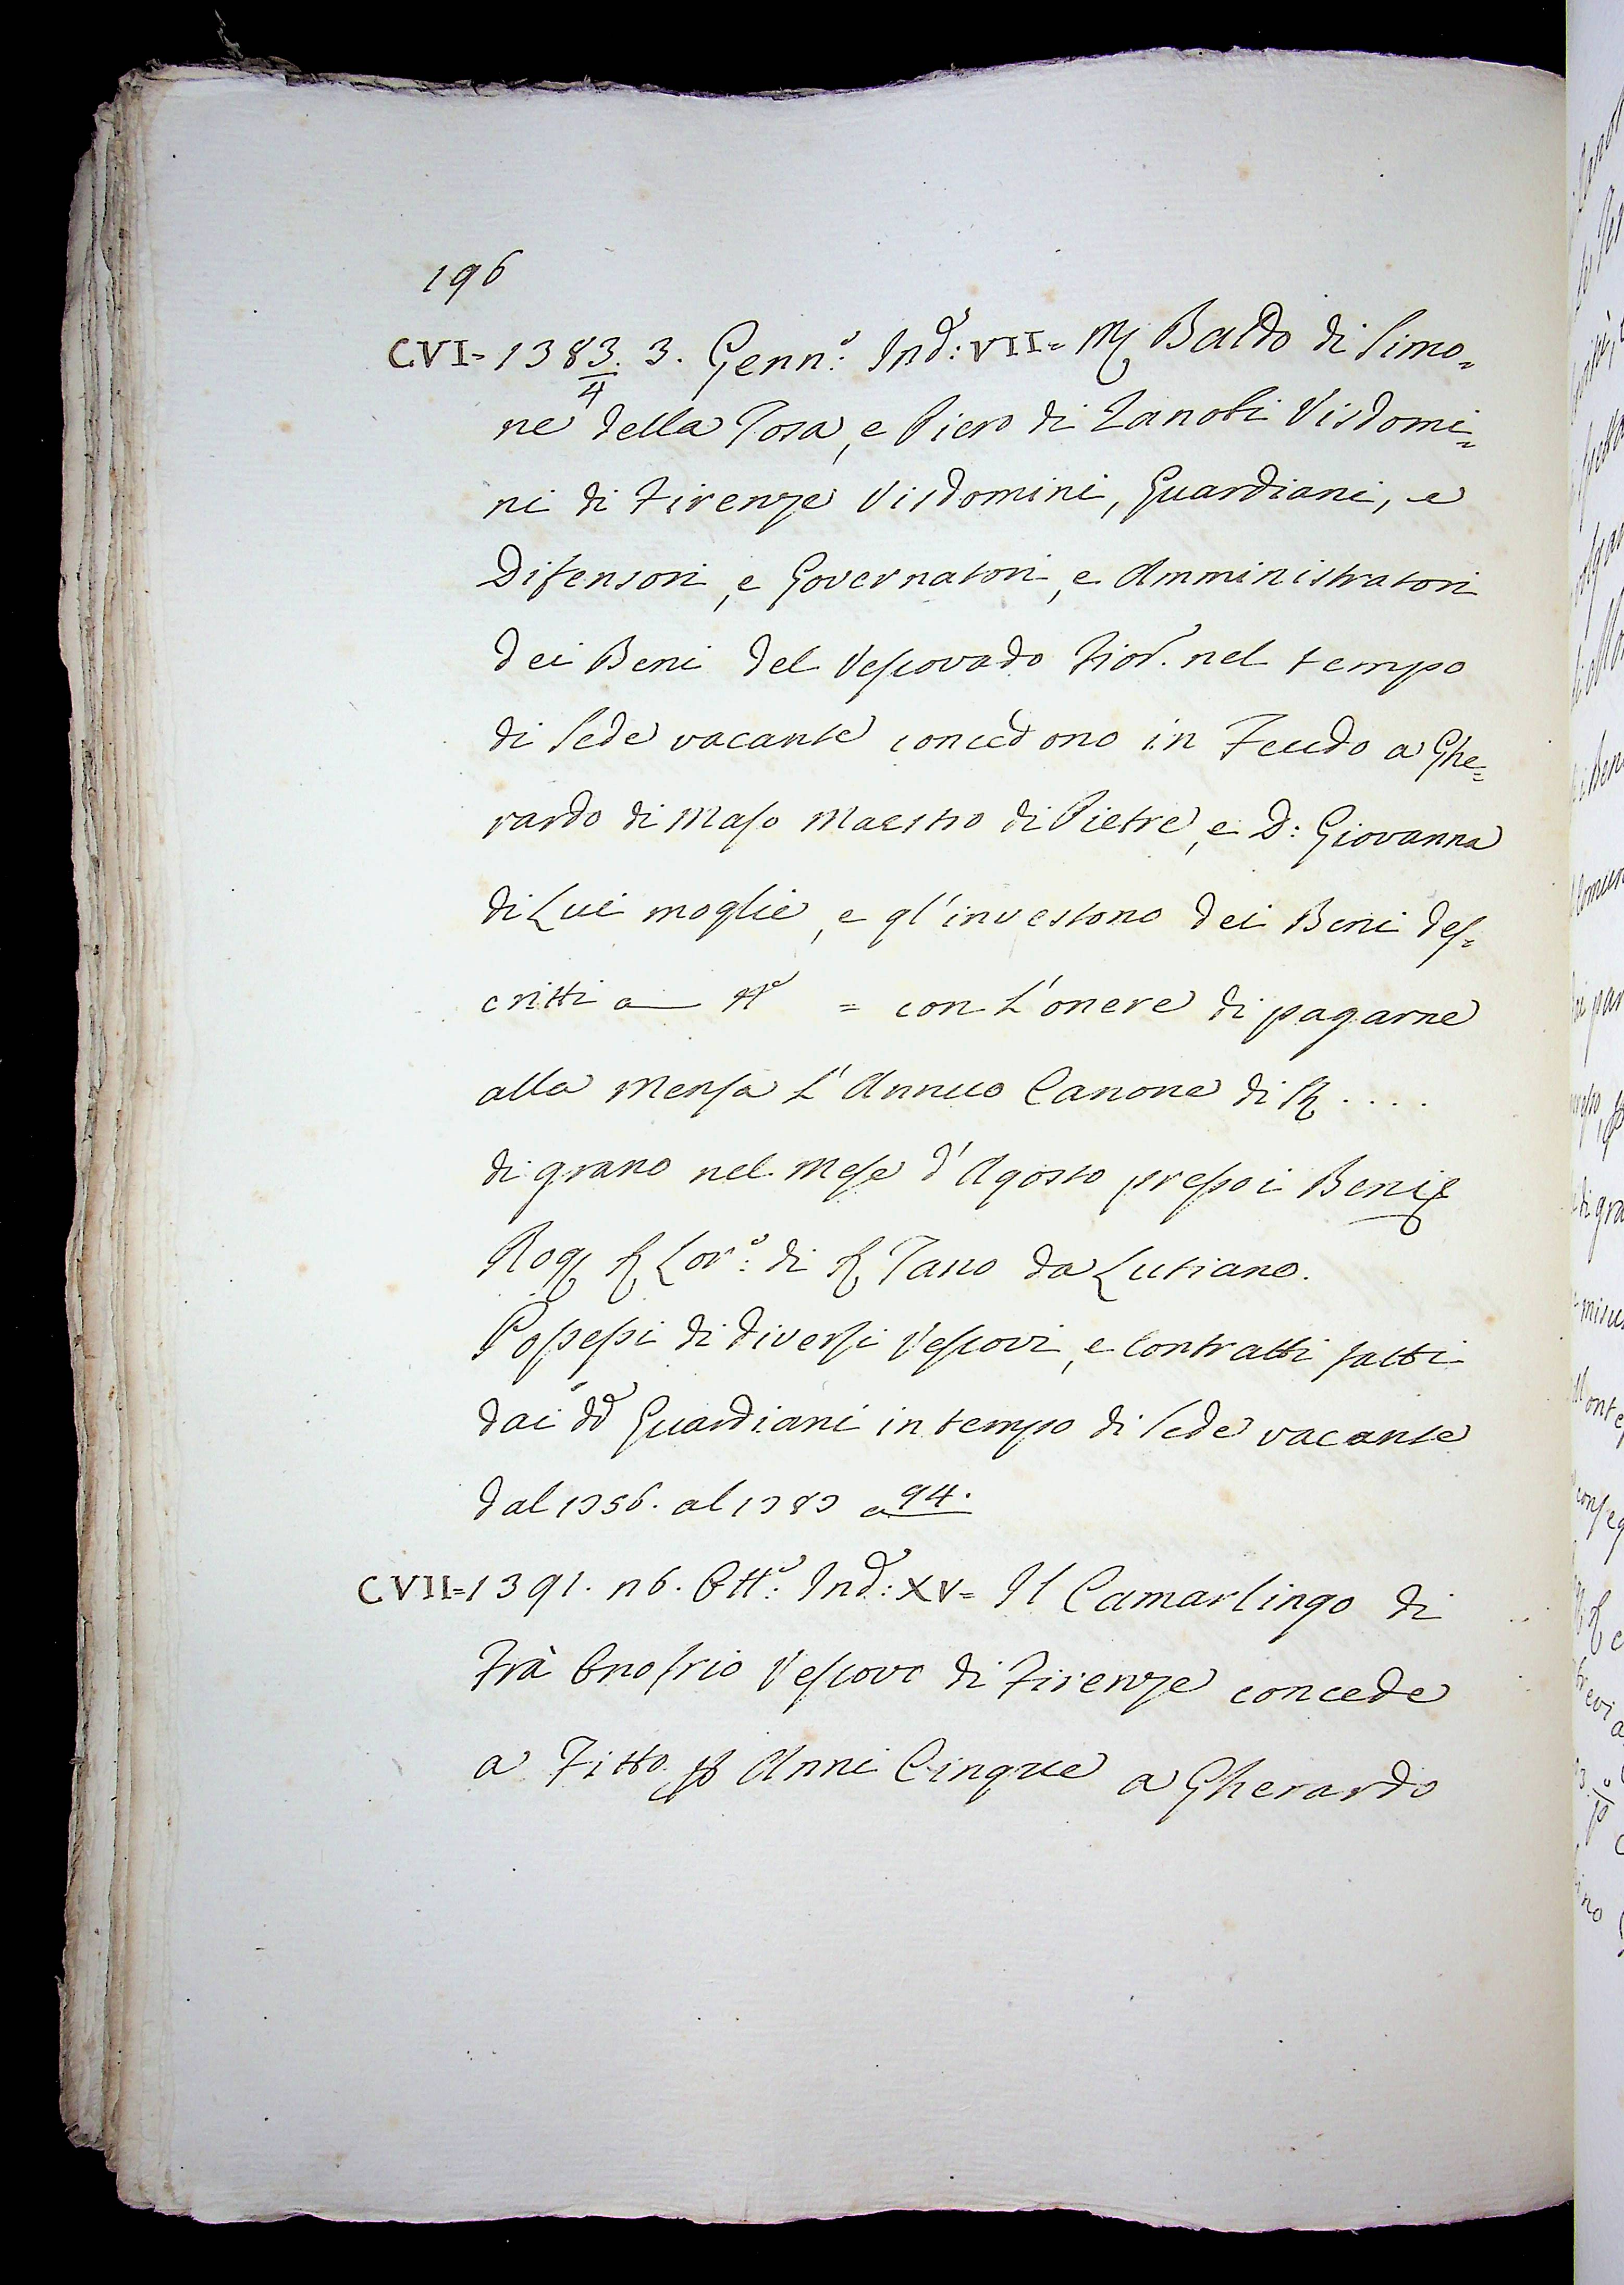 196
CVI = 1383/4. 3. Genn.º Ind.: VII = Mr Baldo di Simo=
ne della Tosa, e Piero di Zanobi Visdomi=
ni di Firenze Visdomini, Guardiani, e
Difensori, e Governatori, e Amministratori
dei Beni del Vescovado Fior. nel tempo
di Sede vacante concedono in Feudo a Ghe=
rardo di Maso Maestro di Pietre, e D: Giovanna
di Lui moglie, e gl'investono dei Beni des=
critti a Nº = con l'onere di pagarne
alla Mensa l'Annuo Canone di st ....
di grano nel Mese d'Agosto presso i Beni
Rog. S. Lor.º: di S. Tano da Lutiano.
Possessi di diversi Vescovi, e Contratti fatti
dai dd. Guardiani in tempo di Sede vacante
dal 1356. al 1383 a 94.
CVII = 1391. 16. Ott.º: Ind.: XV = Il Camarlingo di
Frà Onofrio Vescovo di Firenze concede
a Fitto p Anni Cinque a Gherardo